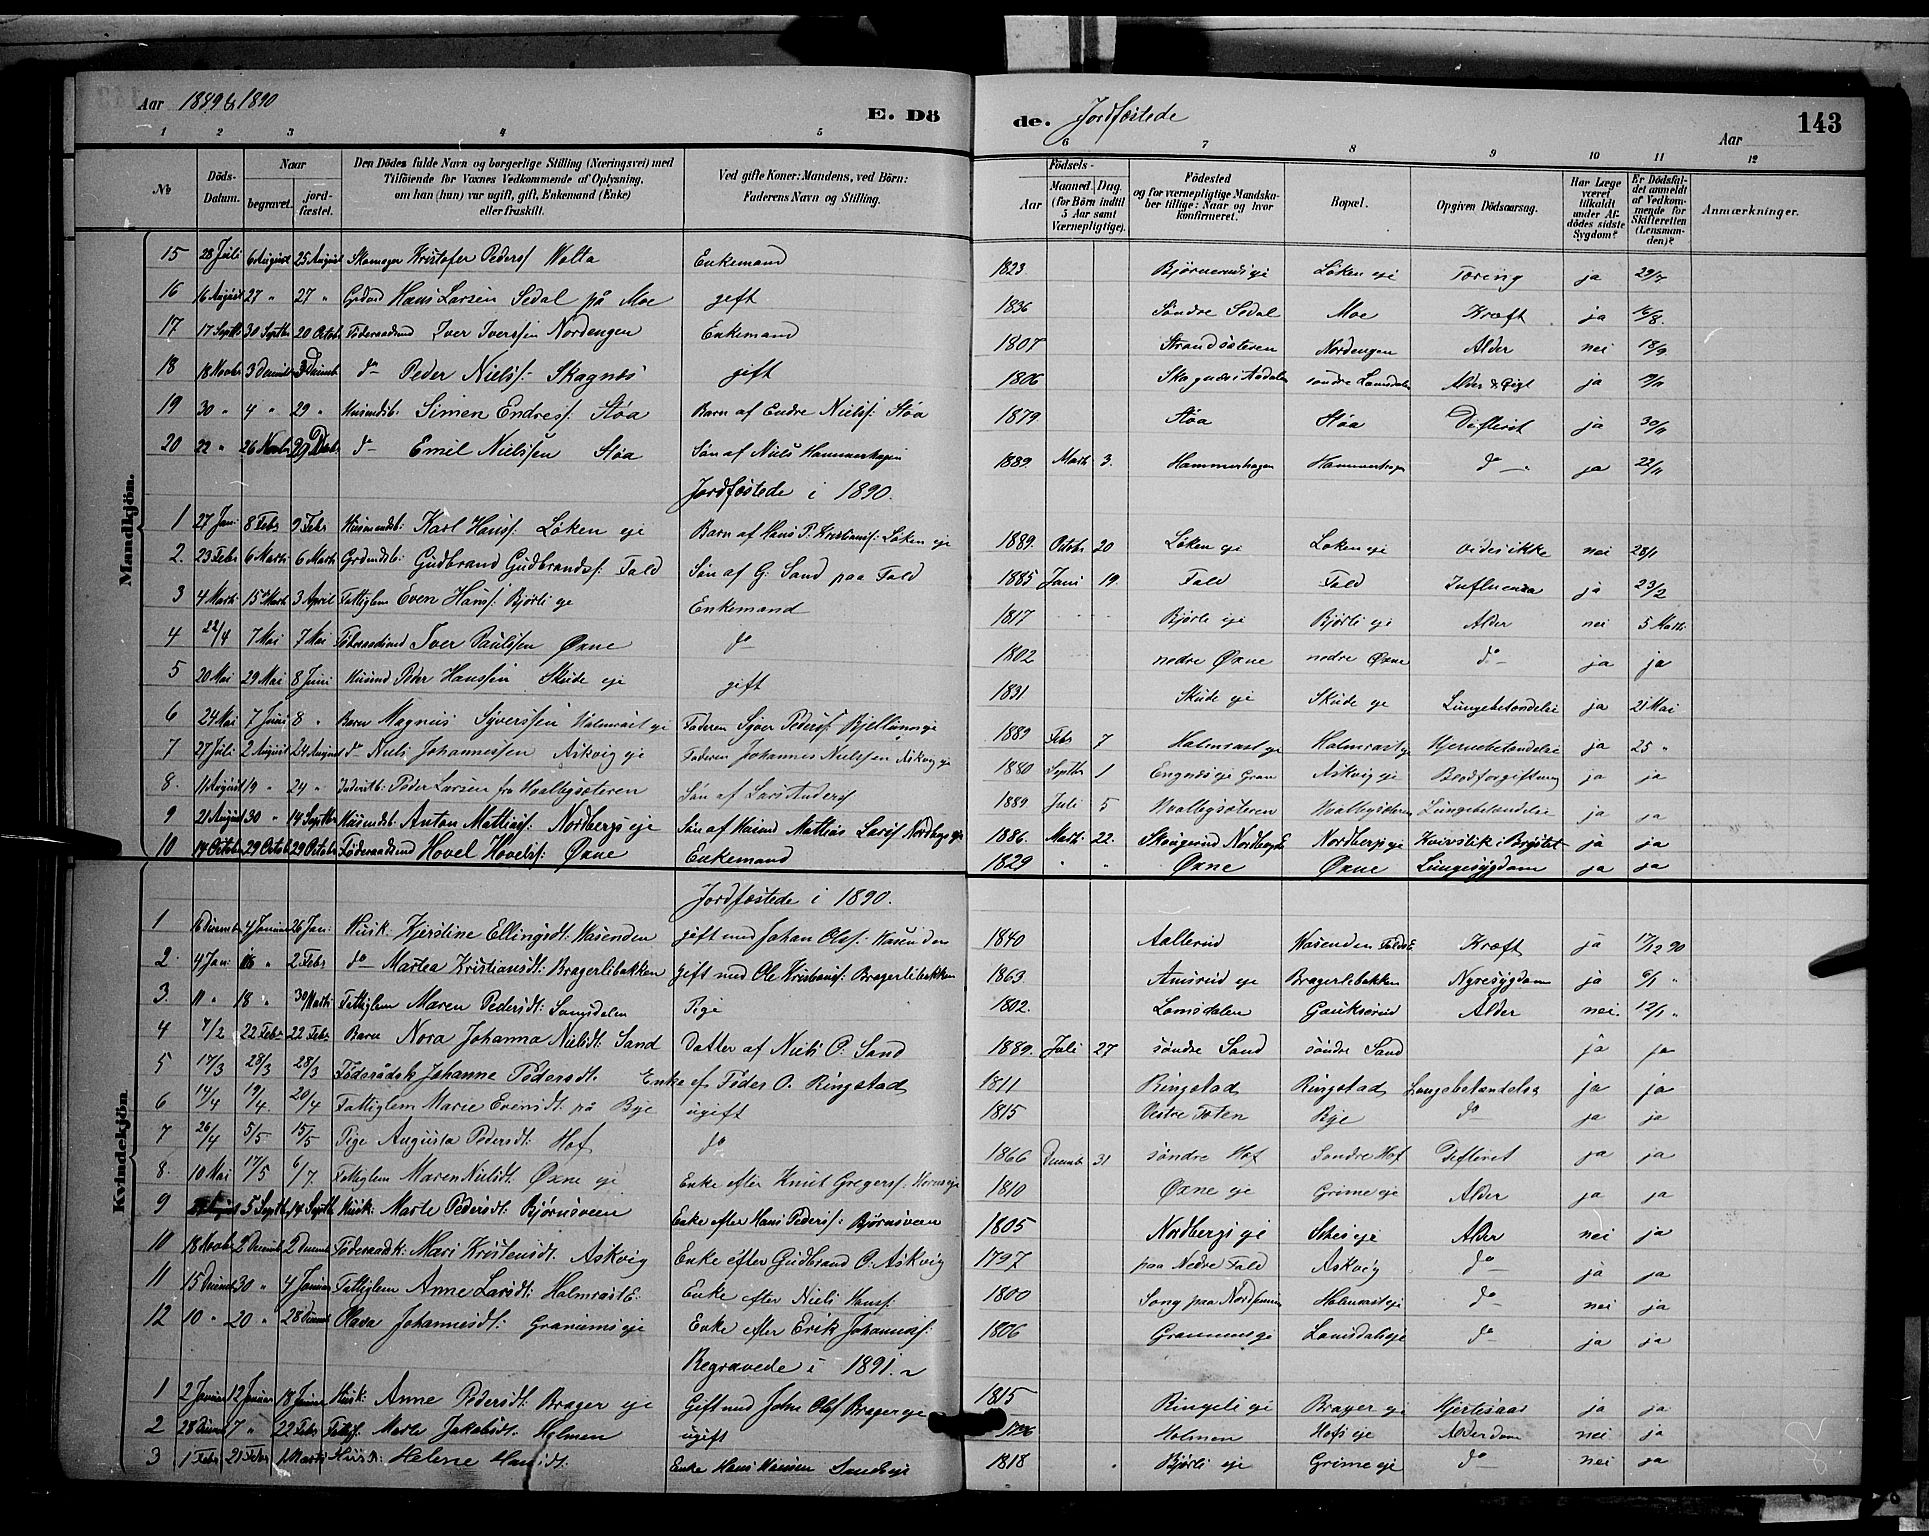 Aar 1889 & 1890
E. Dö
de. Jordfæstede
Aar
143
1 2 3 4 5 6 7 8 9 10 11 12
№
Döds-Datum.
Naar
begravet.
jord-fæstet.
Den Dödes fulde Navn og borgerlige Stilling (Næringsvei) med Tilföiende for Voxnes Vedkommende af Oplysning, om han (hun) var ugift, gift, Enkemand (Enke) eller fraskilt.
Ved gifte Koner: Mandens, ved Börn: Faderens Navn og Stilling.
Födsels-
Aar
Maaned. Dag.
(for Börn indtil 5 Aar samt Værnepligtige).
Födested og for værnepligtige Mandskaber tillige: Naar og hvor konfirmeret.
Bopæl.
Opgiven Dödsaarsag.
Har Læge været tilkaldt under Afdödes sidste Sygdom?
Er Dödsfaldet anmeldt af Vedkommende for Skifteretten (Lensmanden)?
Anmærkninger.
Mandkjön.
15 28 Juli 6 August 25 August Skomager Kristofer Peders: Volta Enkemand 1823 Løken eje Tæring ja 29/7
16 16 August 27 " 27 " Hans Larsen Sedal på Moe gift 1836 Søndre Sedal Moe Kræft ja 16/8.
17 17 Septb 30 Septbr 20 Octob Iver Iverssen Nordengen Enkemand 1807 Strandsæteren Nordengen Alder nei 18/9
18 18 Novbr 3 Decemb 3 Decemb do Peder Niels: Skagnæs gift 1806 Skagnæs i Aadalen søndre Lamsdalen Alder & Gigt ja 19/11
19 30 " 4 " 29 " Husmdsb: Simen Endres: Støa Barn af Endre Niels: Støa 1879 Støa Støa Difterit ja 30/11
20 22 " 26 Novbr 29 Decb do Emil Nielssen Støa Søn af Niels Hammerhagen 1889 Marts 3. Hammerhagen Hammerhagen do ja 22/11
Jordfæstede i 1890.
1 27 Jan 8 Febr 9 Febr Husmændsb: Karl Hans: Løken eje Barn af Hans P. Kristians: Løken eje 1889. Octobr 20 Løken eje Løken eje vides ikke nei 28/1
2. 23 Febr 6 Marts 6 Marts Grdmdsb: Gudbrand Gudbrands: Fald Søn af G: Sand paa Fald 1885 Juni 19. Fald Fald Influenza ja 23/2
3 4 Marts 15 Marts 3 April Fattiglem Even Hans: Bjørli eje Enkemand 1817 Bjørli eje Bjørli eje Alder nei 5 Marts
4 22/4 7 Mai 7 Mai Føderaadsmd Iver Paulssen Øxne do 1802 nedre Øxne nedre Øxne do ja ja
5 20 Mai 29 Mai 8 Juni Husmd Peder Hanssen Skude eje gift 1831 Skude eje Skude eje Lungebetændelse ja 21 Mai
6 24 Mai 7 Juni 8 " Barn Magnus Syverssen Halmrast eje Faderen Syver Peders: 1889 Febr 7 Halmrast eje Halmrast eje Hjernebetændelse ja 25 "
7 27 Juli 2 August 24 August do Niels Johannessen Askvig eje Faderen Johannes Nielssen Askvig eje 1880 Septbr 1 Engnæs eje Gran Askvig eje Blodforgiftning ja ja
8. 11 August 19 " 24 " Peder Larsen fra Hvalbysæteren Søn af Lars Anders: 1889 Juli 5 Hvalbysæteren Hvalbysæteren Lungebetændelse ja ja
9 21 August 30 " 14 Septbr Husmdsb: Anton Mathias: Nordbergs eje Søn af Husmd Mathias Lars: Nordbergs eje 1886. Marts 22. Nordbergs eje ja ja
10 14 Octob 29 Octob 29 Octob Føderaadsmd Hovel Hovels: Øxne Enkemand 1829 " " Øxne Øxne Lungesygdom ja ja
Kvindekjön.
Jordfæstede i 1890.
1 16 Decemb 4 Januar 26 Jan. Husk. Kjerstine Ellingsdt: Vasenden gift med Johan Ols: Vasenden 1840 Aallerud Vasenden Kræft ja 17/12 90
2. 4 Jan: 16 " 2 Febr do Martea Kristiansdt: Bragerlibakken gift med Ole Kristians: Bragerlibakken 1863. Amsrud eje Bragerlibakken Nyresygdom ja 6/1 "
3. 11 " 18 " 30 Marts Fattiglem Maren Pedersdt: Lamsdalen Pige 1802. Lamsdalen Gauksrud Alder nei. 12/1 "
4 7/2 22 Febr 22 Febr Barn Nora Johanna Nielsdt: Sand Datter af Niels P. Sand 1889. Juli 27 søndre Sand søndre Sand ja ja
5 17/3 28/3 28/3 Føderådsk Johanne Pedersdt. Enke ef. Peder O. Ringstad 1811 Ringstad Ringstad Lungebetændelse ja ja
6 14/4 19/4. 20/4 Fattiglem Marie Evensdt: på Bye ugift 1815 Vestre Toten Bye do ja ja
7 26/4 5/5 15/5 Pige Augusta Pedersdt: Hof do 1866 Decemb 31 søndre Hof Søndre Hof Difterit ja ja
8. 10 Mai 17/5 6/7. Fattiglem Maren Nielsdt: Øxne eje Enke efter Knut Gregers: 1810 Øxne eje Grime eje Alder ja ja
9 August 5 Septb 14 Septb Husk: Marte Pedersdt: Bjørnsveen Enke efter Hans Peders: Bjørnsveen 1805 Nordbergs eje Alder nei ja
10 18 Novbr 2 Decemb 2 Decemb Føderaadsk: Mari Kristensdt: Askvig Enke efter Gudbrand O: Askvig 1797 paa Nedre Fald Askvig do ja ja
11 15 Decemb 30 " 4 Januar Fattiglem Anne Larsdt: Halmrast E. Enke efter Niels Hans: 1800 Halmrast eje do nei ja
12 10 " 20 " 28 Decemb Olava Johannesdt: Granums eje Enke efter Erik Johannes: 1806 Granums eje Lamsdals eje do ja ja
Begravede i 1891.
1 2 Januar 12 Januar 18 Januar Husk: Anne Pedersdt: Brager eje Gift med John Ols: Brager eje 1815 Ringeli eje Brager eje ja ja
2 28 Decemb 7 " 22 Febr Marte Jakobsdt: Holmen ugift 1796 Holmen Hofs eje Alderdom nei ja
3 1 Febr 21 Febr 1 Marts Husk: Helene Hansdt: Enke Hans Hansen Sands eje 1818 Bjørli eje Grime eje do nei ja